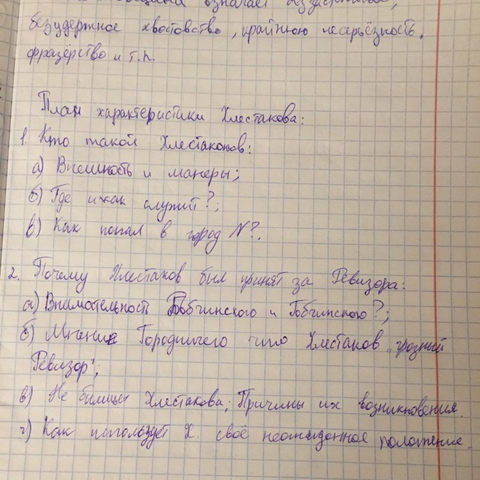 означает
безудержное хвастовство, крайнюю несерьёзность,
фразёрство и т.п.
План характеристики Хлестакова:
1. Кто такой Хлестаков:
а) Внешность и манеры;
б) Где и как служит?;
в) Как попал в город N?.
2. Почему Хлестаков был принят за Ревизора:
а) Внимательность Бобчинского и Добчинского?;
б) Мнение Городничего что Хлестаков „грозный
Ревизор";
в) Не Хлестакова; Причины их возникновения.
г) Как использует Х своё неожиданное положение.